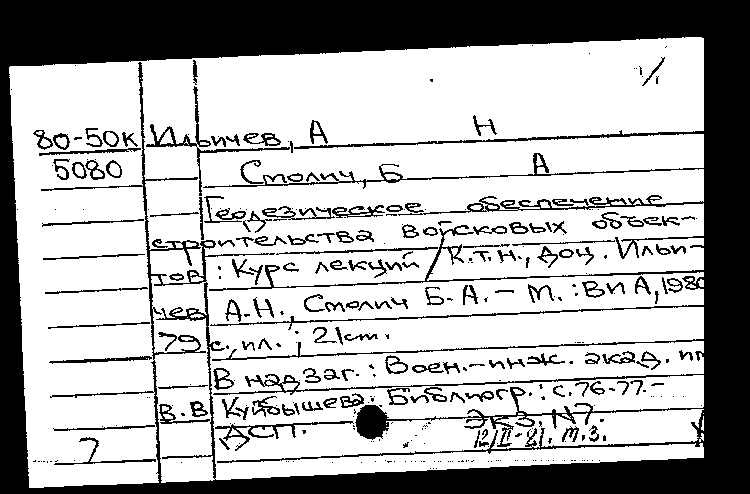 80-50к Ильичев, А Н
5080 Столич, Б А
Геодезическое обеспечение
строительства войсковых объек-
тов : Курс лекций / К.т.н., доц. Ильи-
чев А.Н., Столич Б.А. – М. : ВИА, 1980
79 с., ил. ; 21 cm.
В надзаг. : Воен.-инж. акад. им
В.В Куйбышева. Библиогр. : с. 76-77. –
ДСП. Экз. N7.
7 12/II-81. т.з.